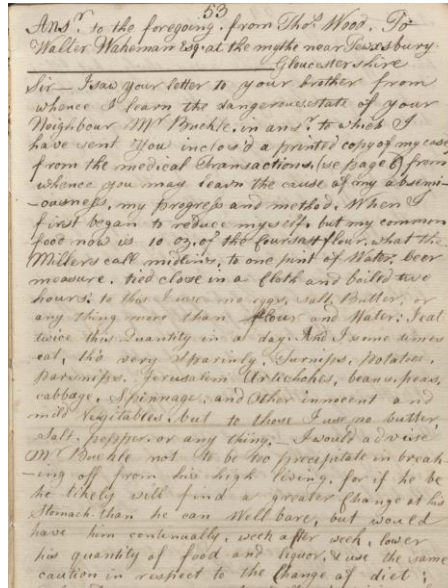 53
Ansr. to the foregoing. from Thos. Wood. To
Walter Wakeman Esqr. at the mythe near Tewxsbury.
Gloucestershire
Sir — I saw your letter to your brother from
whence I learn the dangerous state of your
Neighbour Mr. Buckle, in ansr. to which I
have sent You inclos'd a printed copy of my case
from the medical Transactions, (see page 6) from
whence you may learn the cause of my abstemi-
-ousness, my progress and method. When I
first began to reduce myself, but my common
food now is 10 oz. of the Coursest flour, what the
Millers call midlins, to one pint of Water, beer
measure, tied close in a Cloth and boiled two
hours; to this I use no eggs, salt, Butter, or
any thing more than flour and Water: I eat
twice this Quantity in a day. And I some times
eat, tho very sparinly, Turnips, Potatoes,
Parsnips, Jerusalem Artichokes, beans, peas,
cabbage, Spinnage, and Other innocent and
mild Vegitables, but to those I use no butter,
salt, pepper, or any thing. — I would advise
Mr. Buckle not to be too precipitate in break-
-ing off from his high living, for if he be
he likely will find a greater Change at his
Stomach than he can Well bare, but would
have him continually, week after week, lower
his quantity of food and liquor, & use the same
caution in respect to the Change of diet;